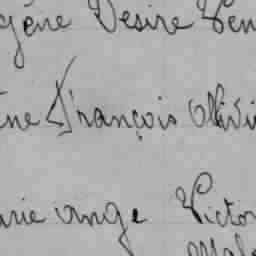 gène Désiré Ven
ène François Olivi
arie ange Victor